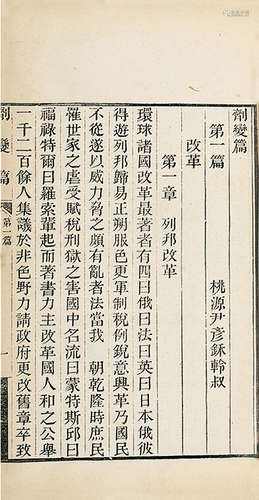 劑變篇
第一篇
桃源尹彥鉌軨叔
改革
第一章 列邦改革
環球諸國改革最著者有四曰俄曰法曰英曰日本俄彼
得遊列邦歸易正朔服色更軍制稅例銳意興革乃國民
不從遂以威力脅之頗有亂者法當我 朝乾隆時庶民
罹世家之虐受賦稅刑獄之害國中名流曰蒙特斯邱曰
福祿特爾曰羅索羣起而著書力主改革國人和之公舉
一千二百餘人集議於非色野力請政府更改舊章卒致
劑變篇 第一篇 一